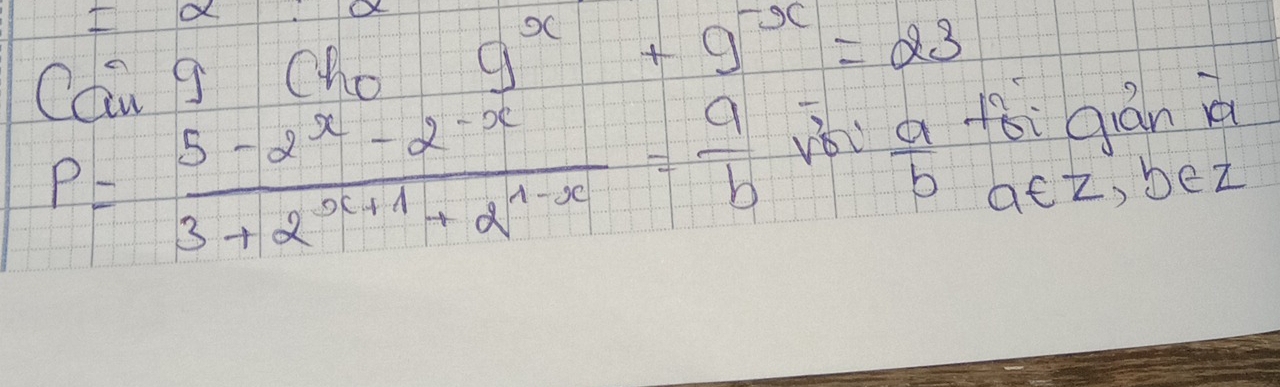 = 2 : 2
Câu 9 Cho 9^x + 9^-x = 23
P = (5 - 2^x - 2^-x) / (3 + 2^(x+1) + 2^(1-x)) = a/b với a/b tối giản và
a∈Z, b∈Z